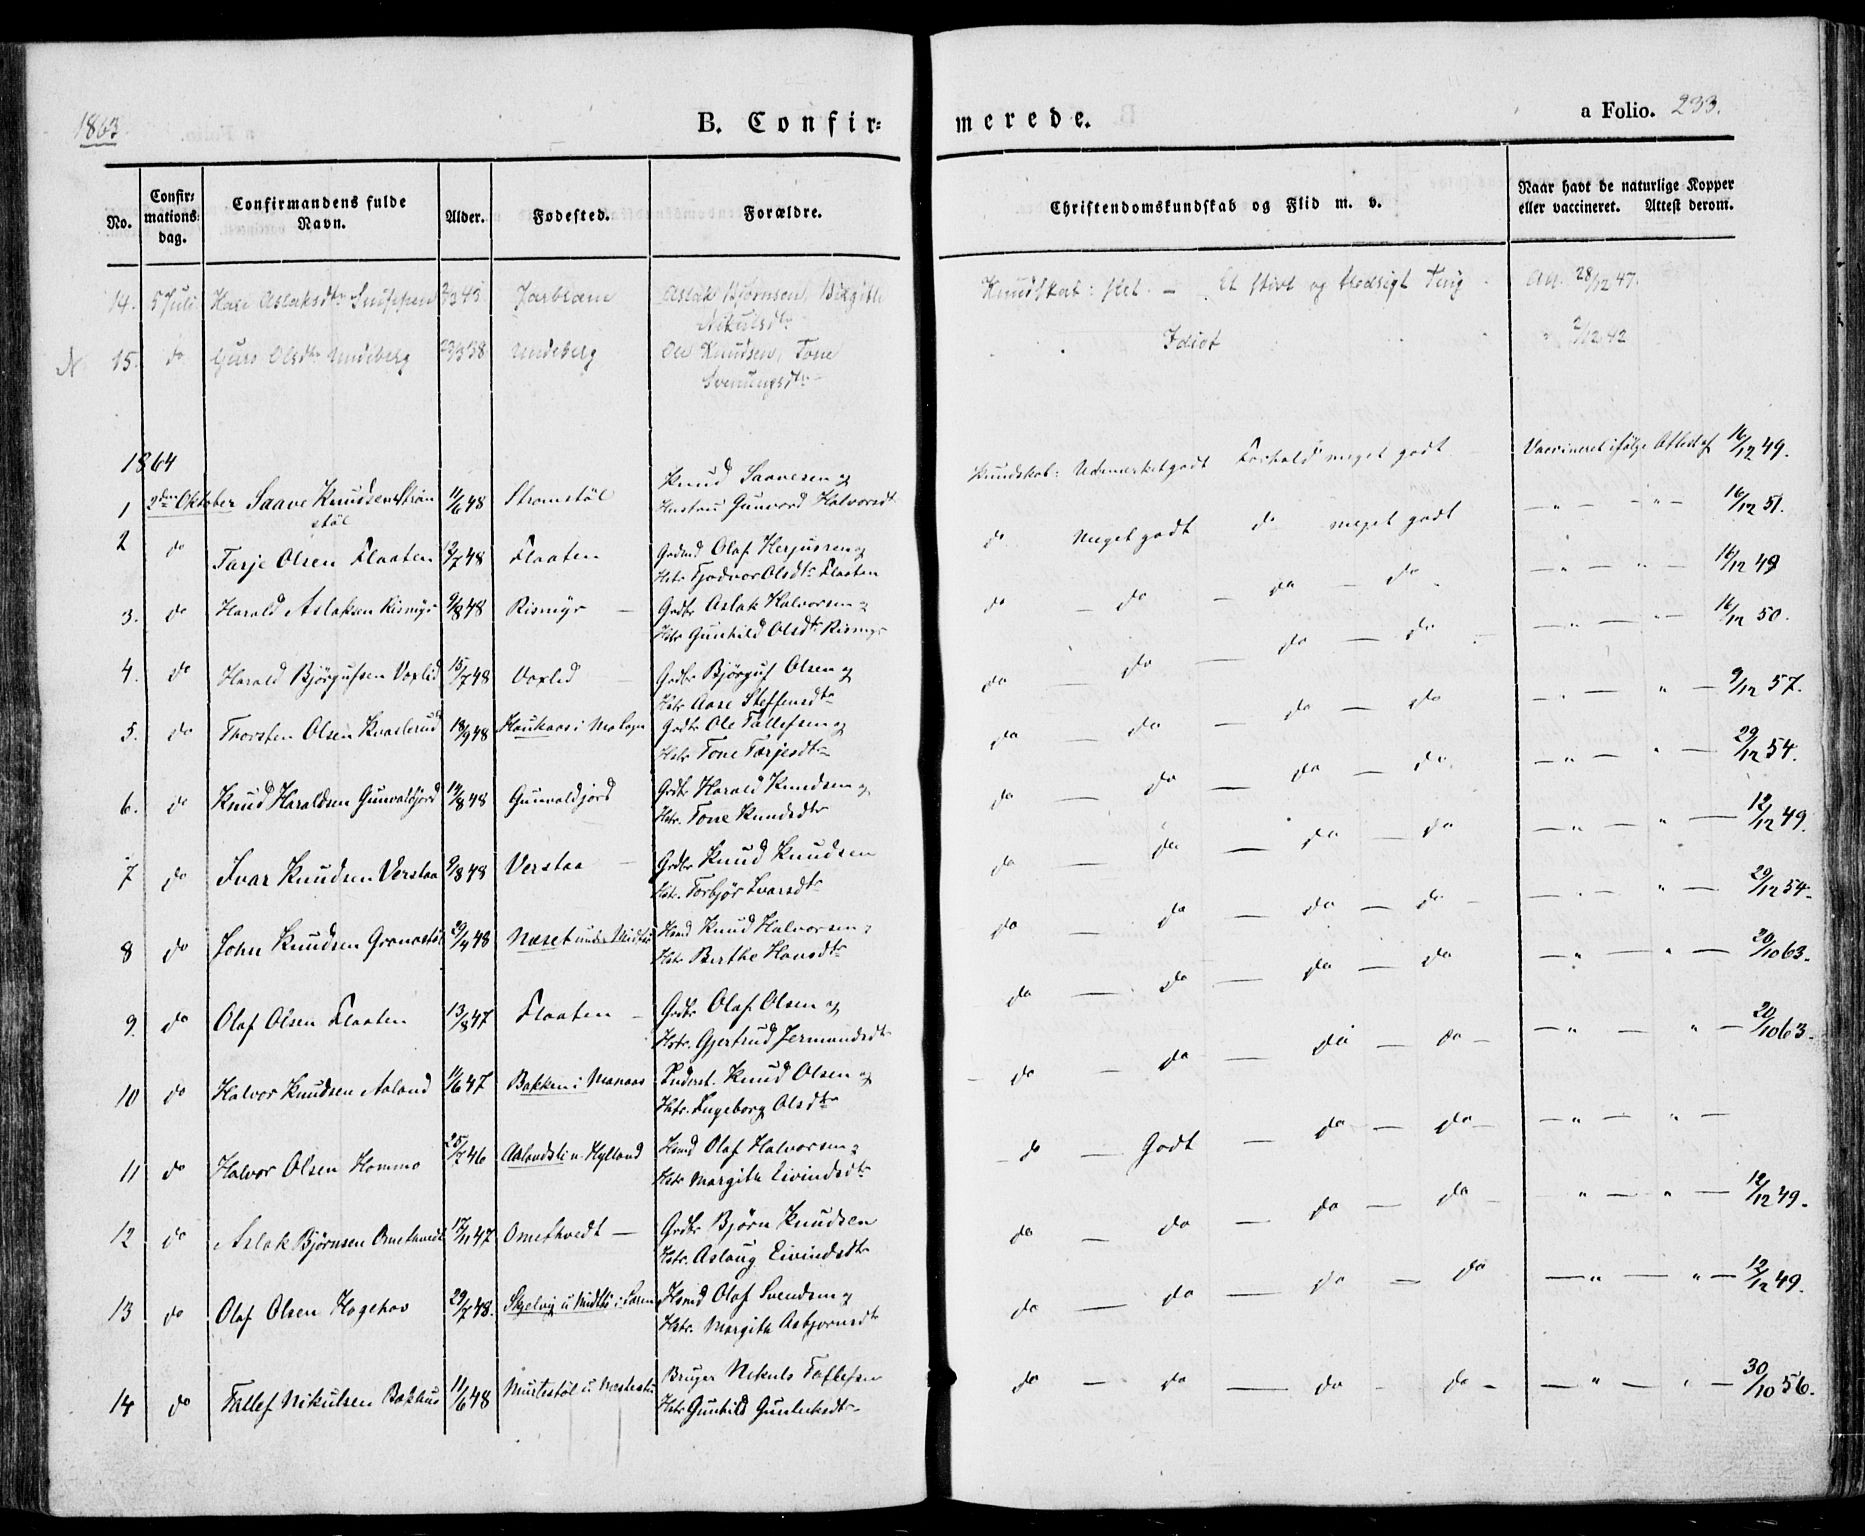 1863.
B. Confir= merede.
a Folio. 233.
No. Confir=mations=dag. Confirmandens fulde Navn. Alder. Fødested. Forældre. Christendomskundskab og Flid m. v. Naar havt de naturlige Kopper eller vaccineret. Attest derom.
14. 5 Juli Aslaksdtr 45 Aslak Bjørnsen, Birgith Kundskab: slet. — Et og Att. 28/12 47.
Nikulsdtr
15. do Olsdtr Undeberg 23/3 38 Undeberg Ole Knudsen, Tone Idiot 2/12 42
Svenungsdtr
1864
1 2den Oktober Saave Knudsen Strøm 11/6 48 Strømstøl Knud Saavesen og Kundskab: Udmærket godt Forhold meget godt Vaccineret ifølge Attest af 16/12 49.
støl Hustru Gunvord Halvorsdtr
2 do Tarje Olsen Flaaten 12/7 48 Flaaten Olaf Herjusen og do Meget godt do meget godt — " — " — 16/12 51.
Hstr Tjodvor Olsdtr Flaaten
3. do Harald Aslaksen Rismyr 9/8 48 Rismyr — Grdbr Aslak Halvorsen og do — do — do — do — " — " — 16/12 49
Hstr Gunhild Olsdtr Rismyr
4. do Harald Bjørgufsen Voxlid 15/7 48 Voxlid — Grdbr Bjørguf Olsen og do — do — do — do — " — " — 16/12 50.
Hstr Aase Steffensdtr
5. do Thorsten Olsen Kvaalerud 18/9 48 Haukaas i Molagn Grdbr Ole Tallefsen og do — do — do — do — " — " — 9/12 57.
Hstr Tone Tarjesdtr
6. do Knud Haraldsen Gunvaldjord 14/8 48 Gunvaldjord Grdbr Harald Knudsen og do — do — do — do — " — " — 29/12 54.
Hstr. Tone Knudsdtr
7 do Ivar Knudsen Verstaa 9/8 48 Verstaa — Grdbr Knud Knudsen do — do — do — do — " — " — 12/12 49.
Hstr. Torbjør Ivarsdtr
8 do John Knudsen 48 Næset under Hsmd Knud Halvorsen og do — do — do — do — " — " — 29/12 54.
Hstr Berthe Hansdtr
9. do Olaf Olsen Flaaten 13/8 47 Flaaten — Grdbr Olaf Olsen og do — do — do — do — " — " — 20/10 63.
Hstr. Gjertrud Jermundsdtr
10 do Halvor Knudsen Aaland 11/6 47 Bakken i Manaas Inderst. Knud Olsen og do — do — do — do — " — " — 20/10 63.
Hstr. Ingeborg Olsdtr
11 do Halvor Olsen Hommo 25/7 46 Aalandsli u. Hylland Hsmd Olaf Halvorsen og do — Godt — do — do — " — " —
Hstr Margith Eivindsdtr
12 do Aslak Bjørnsen Omthvedt 17/11 47 Omthvedt — Grdbr Bjørn Knudsen do — do — do — do — " — " — 12/12 49.
Hstr. Aslaug Eivindsdtr
13 do Olaf Olsen Hogehov 29/7 48. Skjelvig u. Midtbø i Hsmd Olaf Svendsen og do — do — do — do — " — " — 12/12 49.
Hstr. Margith Asbjørnsdtr
14 do Tallef Nikulsen Bakhus 11/6 48 Murtestøl u. Bruger Nikuls Tallefsen do — do — do — do — " — " — 30/10 56.
Hstr Gunhild Gunleiksdtr